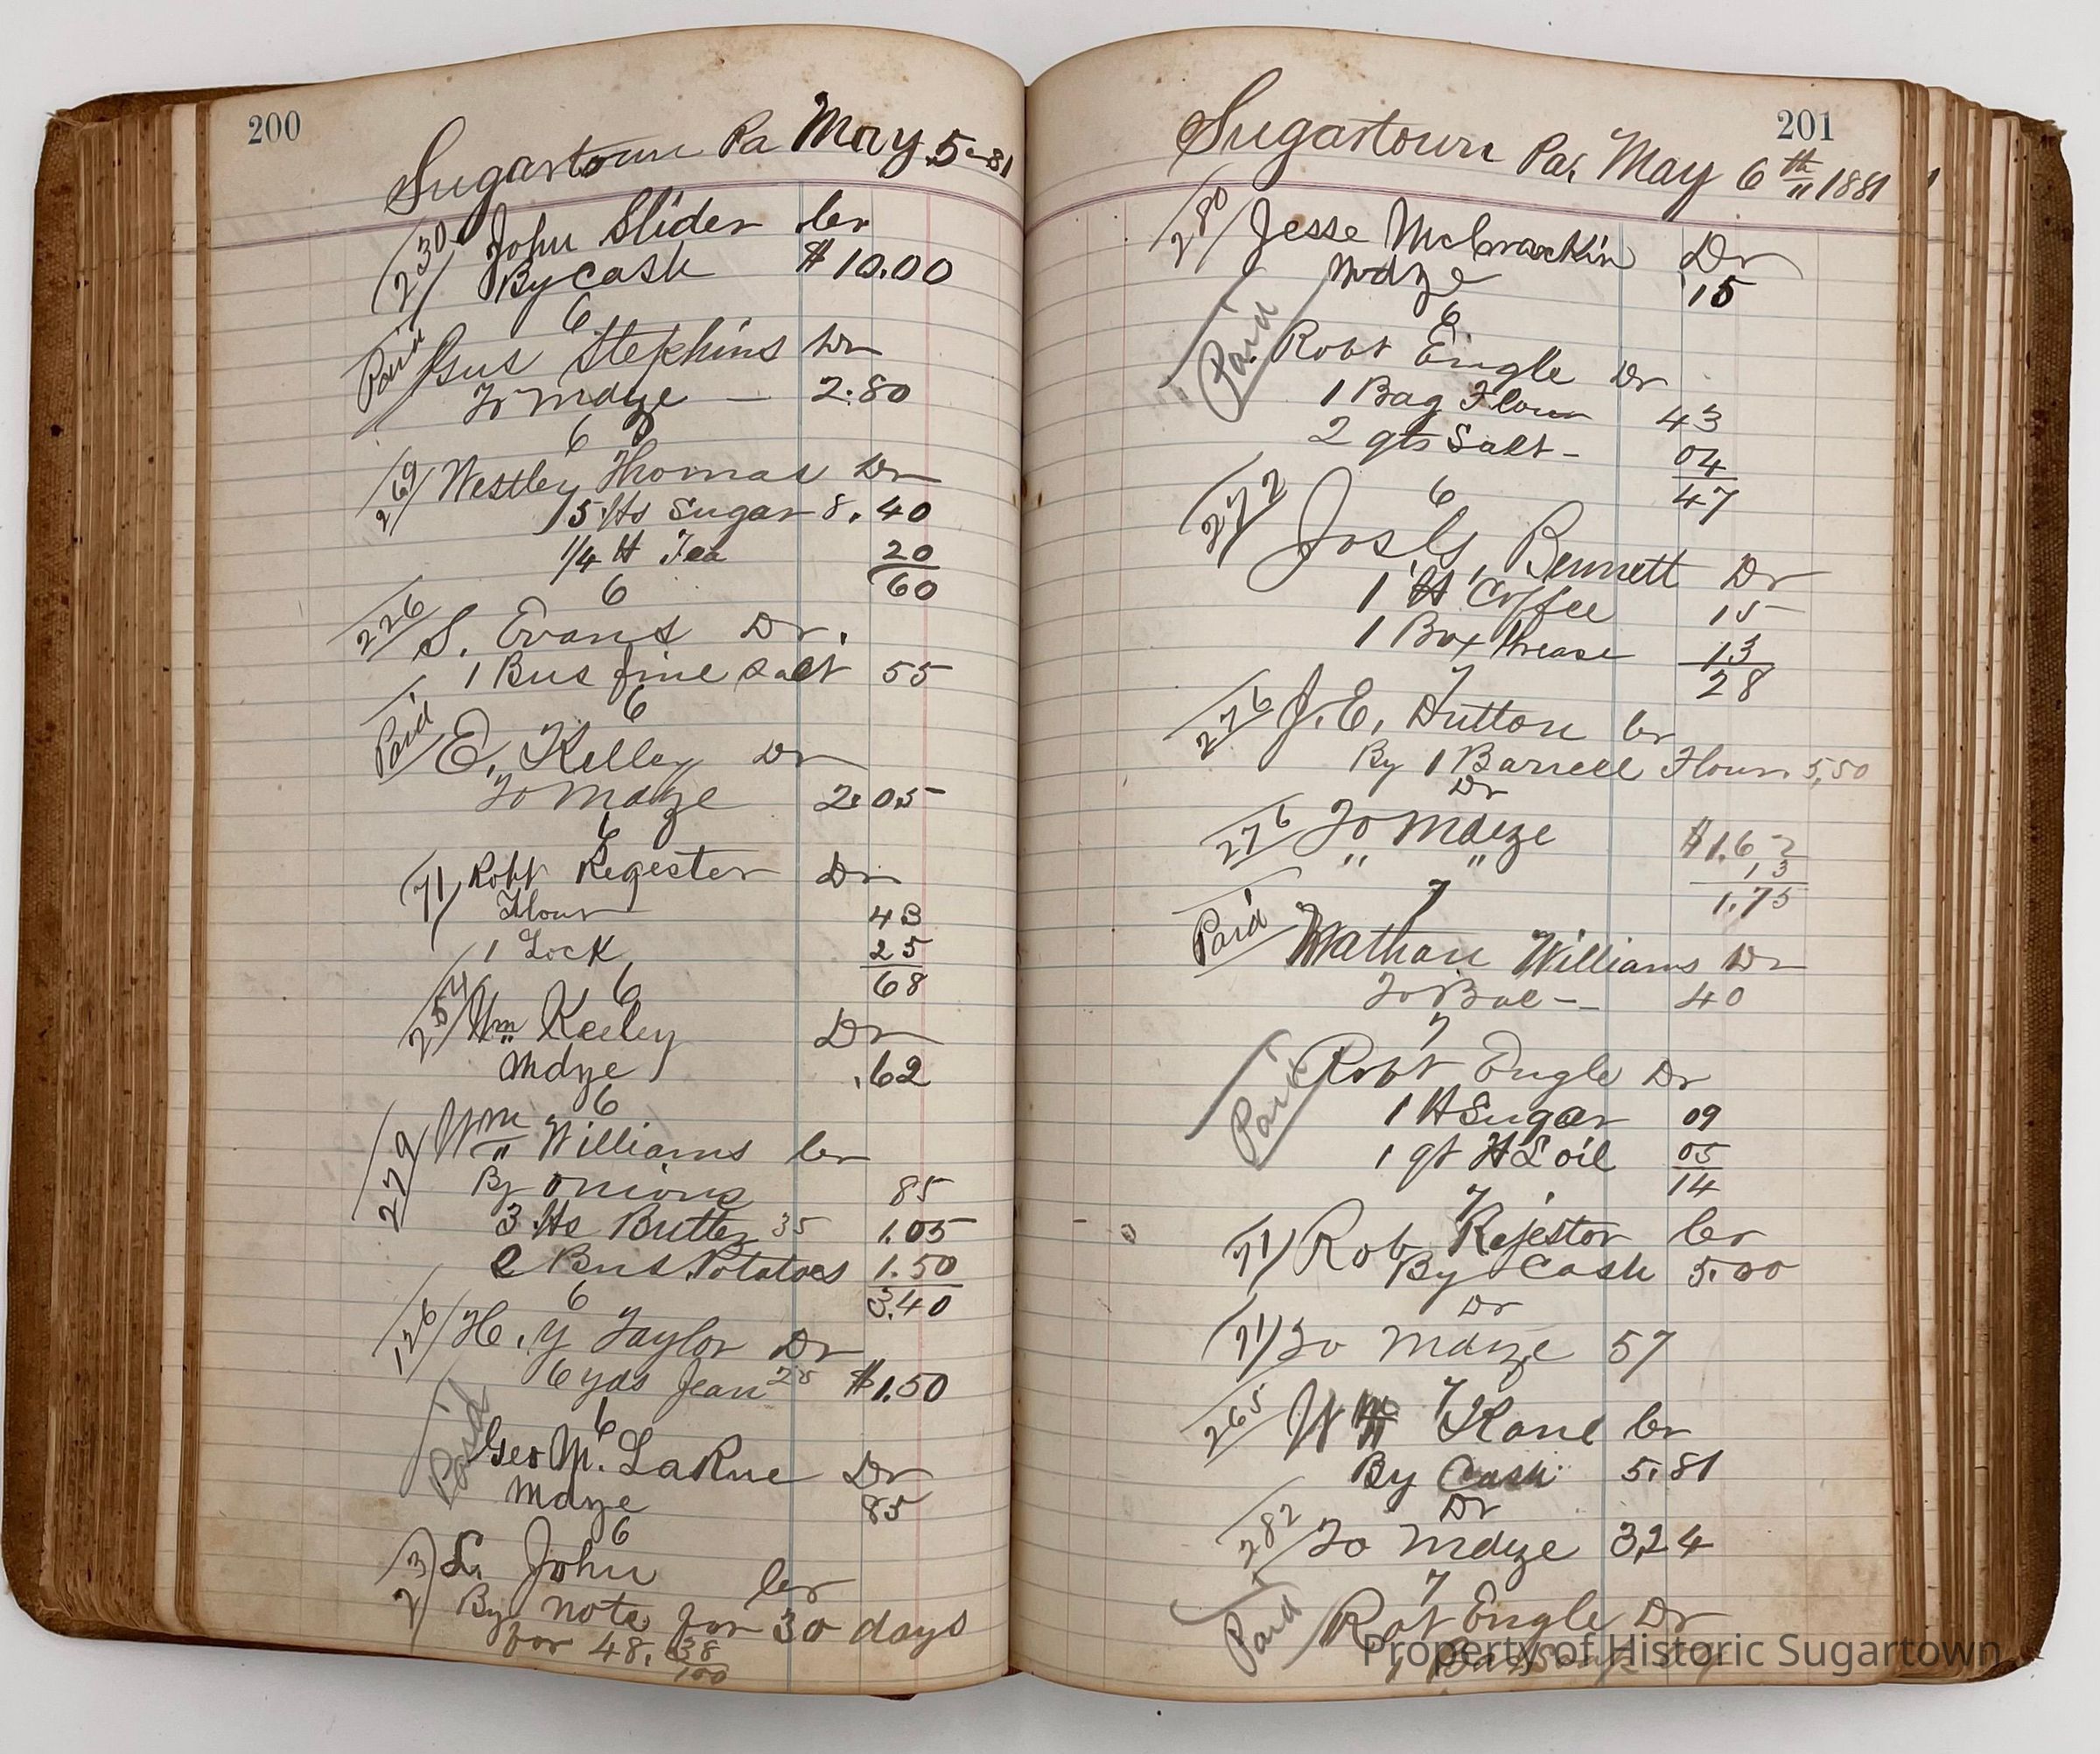 200
Sugartown Pa May 5-81
230 John Slider Cr
By Cash $10.00
6
Paid Gus Stephins Dr
To Mdze — 2.80
6
269 Westley Thomas Dr
5 lbs Sugar 8. 40
1/4 lb Tea 20
60
6
226 S. Evans Dr.
1 Bus fine Salt 55
6
Paid E. Kelley Dr
To Mdze 2.05
6
71 Robt Regester Dr
Flour 43
1 Lock 25
68
6
254 Wm Keeley Dr
Mdze .62
6
279 Wm Williams Cr
By onions 85
3 lbs Butter 35 1.05
2 Bus Potatoes 1.50
3.40
6
126 H. Y Taylor Dr
6 yds Jean 25 $1.50
6
Paid Geo M. LaRue Dr
Mdze 85
6
23 L. John Cr
By note for 30 days
for 48. 38/100
201
Sugartown Pa, May 6th 1881
280 Jesse McCrackin Dr
Mdze 15
6
Paid Robt Eingle Dr
1 Bag Flour 43
2 qts Salt - 04
47
6
272 Jos G, Bennett Dr
1 lb Coffee 15
1 Box Grease 13
28
7
276 J. E. Dutton Cr
By 1 Barrell Flour 5,50
Dr
276 To Mdze $1.62
" " ,13
1.75
7
Paid Nathan Williams Dr
To Bal — 40
7
Paid Robt Engle Dr
1 lb Sugar 09
1 qt H L oil 05
14
7
71 Rob Rejestor Cr
By Cash 5.00
Dr
71 To Mdze 57
7
265 Wm Kane Cr
By Cash 5.81
Dr
282 To Mdze 3,24
7
Paid Robt Engle Dr
1 Bar Soap
Property of Historic Sugartown